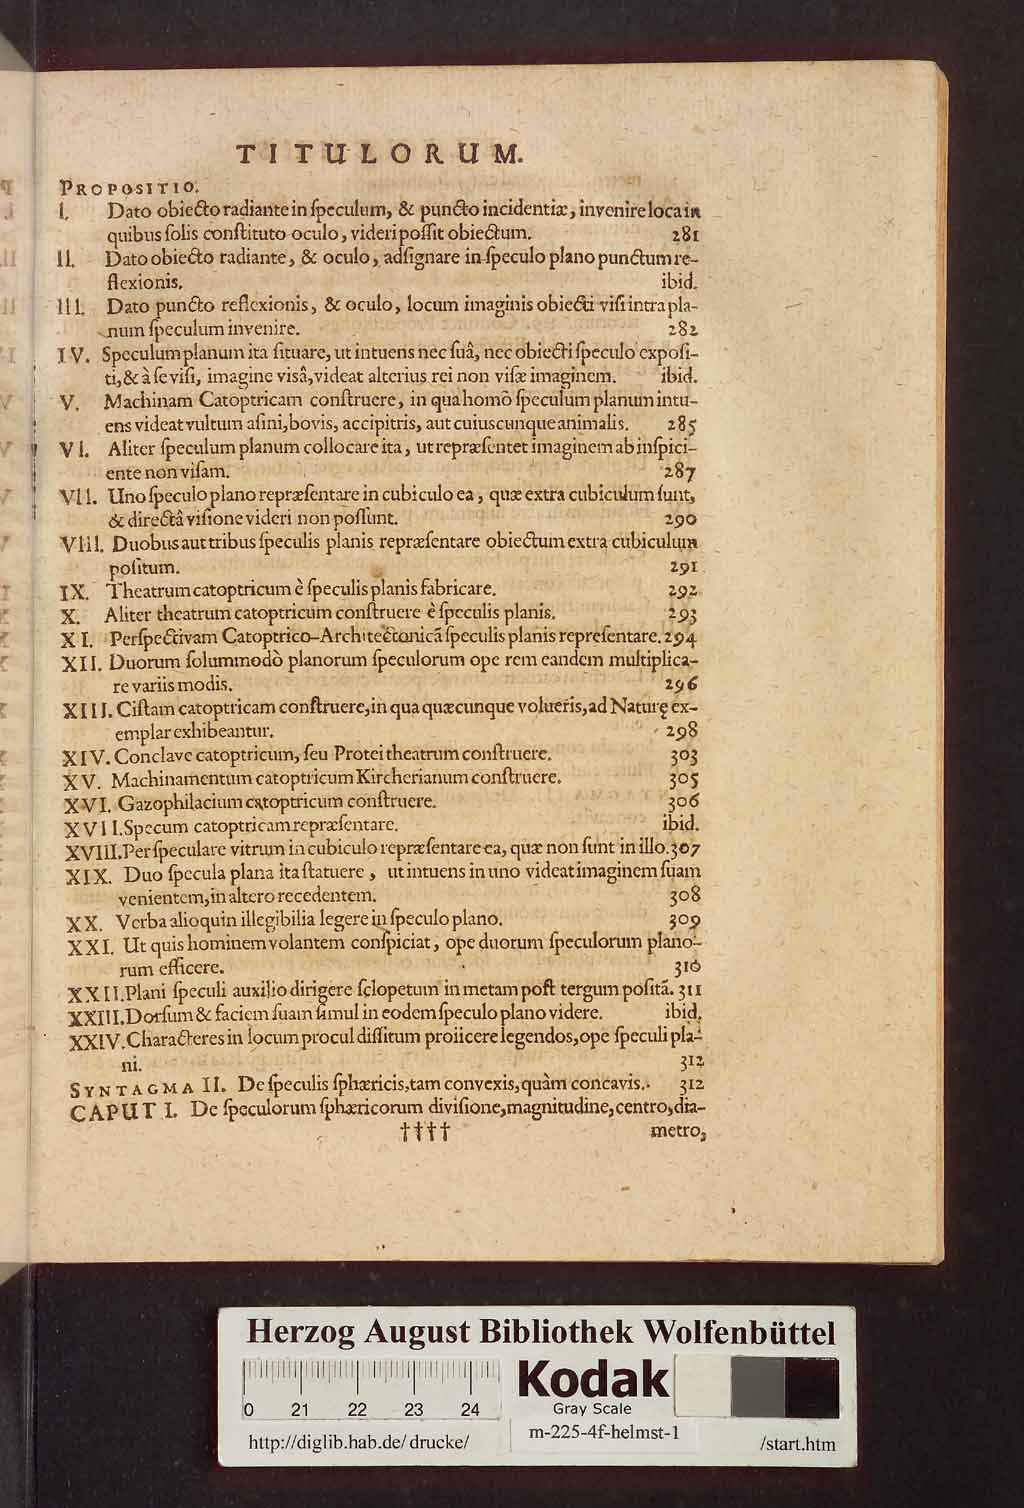 TITULORUM.
PROPOSITIO.
I. Dato obiecto radiante in ſpeculum, & puncto incidentiæ, invenire loca in
quibus ſolis conſtituto oculo, videri poſſit obiectum. 281
II. Dato obiecto radiante, & oculo, adſignare in ſpeculo plano punctum re-
flexionis. ibid.
III. Dato puncto reflexionis, & oculo, locum imaginis obiecti viſi intra pla-
num ſpeculum invenire. 282
IV. Speculum planum ita ſituare, ut intuens nec ſuâ, nec obiecti ſpeculo expoſi-
ti, & à ſe viſi, imagine visâ, videat alterius rei non viſæ imaginem. ibid.
V. Machinam Catoptricam conſtruere, in qua homo ſpeculum planum intu-
ens videat vultum aſini, bovis, accipitris, aut cuiuscunque animalis. 285
VI. Aliter ſpeculum planum collocare ita, ut repræſentet imaginem ab inſpici-
ente non viſam. 287
VII. Uno ſpeculo plano repræſentare in cubiculo ea, quæ extra cubiculum ſunt,
& directâ viſione videri non poſſunt. 290
VIII. Duobus aut tribus ſpeculis planis repræſentare obiectum extra cubiculum
poſitum. 291
IX. Theatrum catoptricum è ſpeculis planis fabricare. 292
X. Aliter theatrum catoptricum conſtruere è ſpeculis planis. 293
XI. Perſpectivam Catoptrico-Architectonicā ſpeculis planis repreſentare. 294
XII. Duorum ſolummodò planorum ſpeculorum ope rem eandem multiplica-
re variis modis. 296
XIII. Ciſtam catoptricam conſtruere, in qua quæcunque volueris, ad Naturę ex-
emplar exhibeantur. 298
XIV. Conclave catoptricum, ſeu Protei theatrum conſtruere. 303
XV. Machinamentum catoptricum Kircherianum conſtruere. 305
XVI. Gazophilacium catoptricum conſtruere. 306
XVII. Specum catoptricam repræſentare. ibid.
XVIII. Per ſpeculare vitrum in cubiculo repræſentare ea, quæ non ſunt in illo. 307
XIX. Duo ſpecula plana ita ſtatuere, ut intuens in uno videat imaginem ſuam
venientem, in altero recedentem. 308
XX. Verba alioquin illegibilia legere in ſpeculo plano. 309
XXI. Ut quis hominem volantem conſpiciat, ope duorum ſpeculorum plano-
rum efficere. 310
XXII. Plani ſpeculi auxilio dirigere ſclopetum in metam poſt tergum poſitā. 311
XXIII. Dorſum & faciem ſuam ſimul in eodem ſpeculo plano videre. ibid.
XXIV. Characteres in locum procul diſſitum proiicere legendos, ope ſpeculi pla-
ni. 312
SYNTAGMA II. De ſpeculis ſphæricis, tam convexis, quàm concavis. 312
CAPUT I. De ſpeculorum ſphæricorum diviſione, magnitudine, centro, dia-
†††† metro,
Herzog August Bibliothek Wolfenbüttel
0 21 22 23 24
Kodak
Gray Scale
m-225-4f-helmst-1
http://diglib.hab.de/drucke/ /start.htm